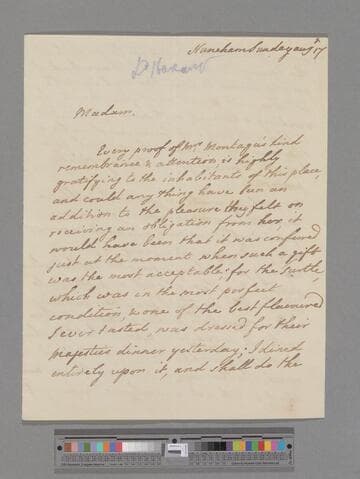 Nuneham Sunday augst 17
Ld Harcourt
Madam.
Every proof of Mrs. Montagu's kind
remembrance & attention, is highly
gratifying to the inhabitants of this place,
and could any thing have been an
addition to the pleasure they felt on
receiving an obligation from her, it
would have been that it was conferred
just at the moment when such a gift
was the most acceptable; for the Turtle,
which was in the most perfect
condition, & one of the best flavoured
I ever tasted, was dressed for their
Majesties dinner yesterday; I dined
entirely upon it, and shall do the